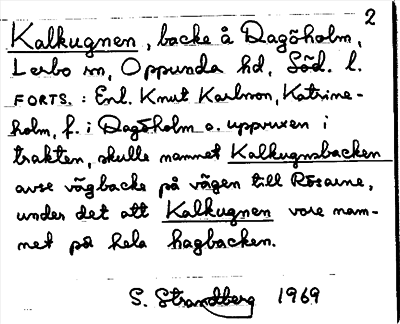 2
Kalkugnen, backe å Dagöholm,
Lerbo sn, Oppunda hd, Söd. l.
FORTS. : Enl. Knut Karlsson, Katrine-
holm, f. i Dagöholm o. uppvuxen i
trakten, skulle namnet Kalkugnsbacken
avse vägbacke på vägen till Rosaune,
under det att Kalkugnen vore nam-
net på hela hagbacken.
S. Strandberg 1969